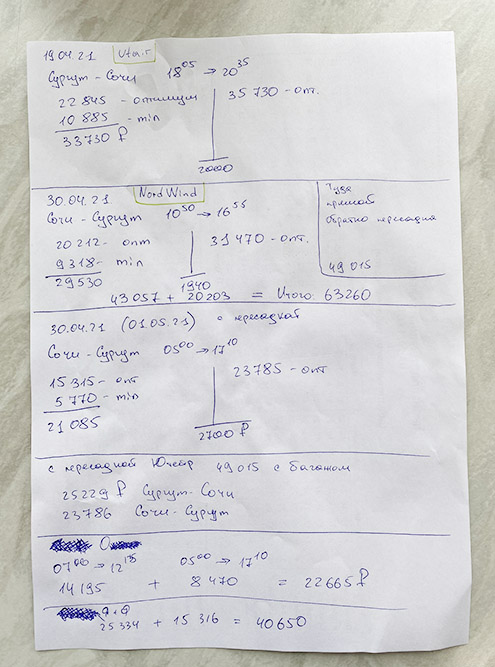 19.04.21 Utair
Сургут - Сочи 18⁰⁵ → 20³⁵
22 845 - оптимум 35 730 - опт.
10 885 - min
33730 ₽
2000
30.04.21 NordWind
Сочи - Сургут 10⁵⁰ → 16⁵⁵
20 212 - опт 31 470 - опт.
9 318 - min
29530
1940
Туда
прямой
обратно пересадка
49 015
43 057 + 20 203 = Итого: 63260
30.04.21 (01.05.21) с пересадкой
Сочи - Сургут 05⁰⁰ → 17¹⁰
15 315 - опт 23785 - опт
5 770 - min
21 085
2700 ₽
с пересадкой Ютэйр 49 015 с багажом
25229 ₽ Сургут - Сочи
23786 Сочи - Сургут
07⁰⁰ → 12¹⁵ 05⁰⁰ → 17¹⁰
14 195 + 8 470 = 22 665 ₽
25 334 + 15 316 = 40 650